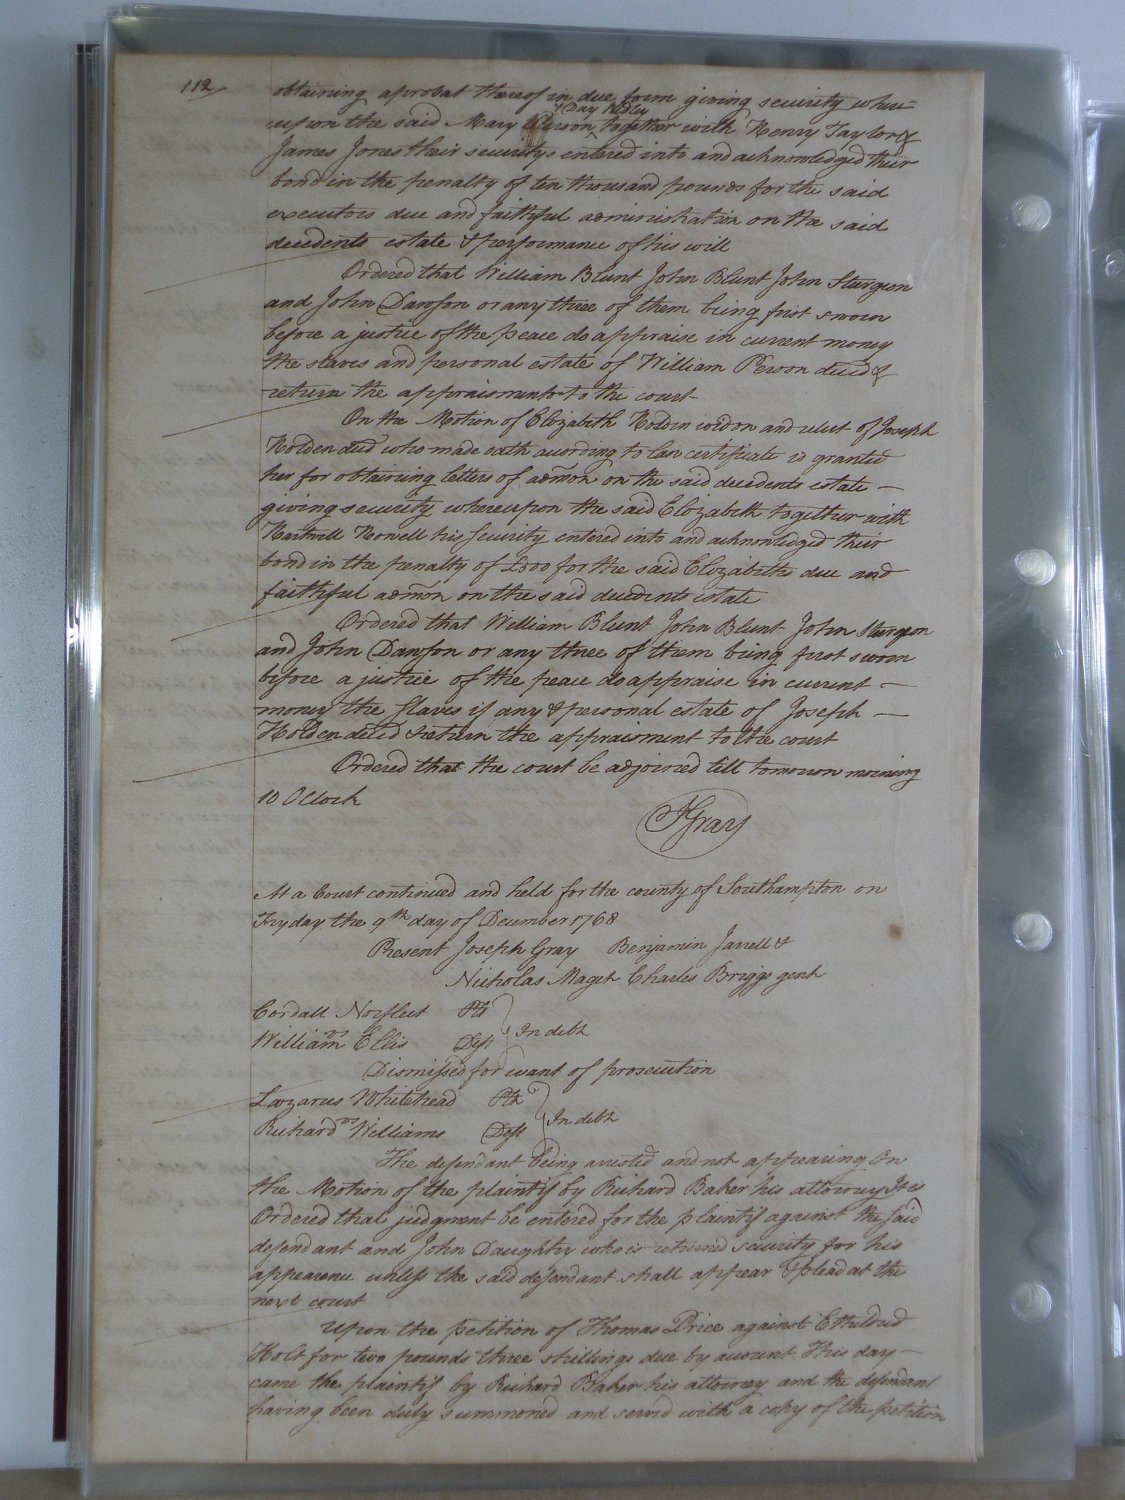 112
obtaining a probat thereof in due form giving security where=
& Day Ridley
upon the said Mary Person, together with Henry Taylor &
James Jones their securitys entered into and acknowledged their
bond in the penalty of ten thousand pounds for the said
executors due and faithful administration on the said
decedents estate & performance of his will
Ordered that William Blunt John Blunt John Sturgeon
and John Dawson or any three of them being first sworn
before a justice of the peace do appraise in current money
the slaves and personal estate of William Person deced &
return the appraisments to the court
On the Motion of Elizabeth Holden widow and relict of Joseph
Holden deed who made oath according to law certificate is granted
her for obtaining letters of admon on the said decedents estate —
giving security whereupon the said Elizabeth together with
Hartwell Howell his Security entered into and acknowledged their
bond in the penalty of £500 for the said Elizabeths due and
faithful admon on the said decedents estate
Ordered that William Blunt John Blunt John Sturgeon
and John Dawson or any three of them being first sworn
before a justice of the peace do appraise in current —
money the slaves if any & personal estate of Joseph —
Holden deced & return the appraisment to the court
Ordered that the court be adjourned till tomorrow morning
10 OClock
J Gray
At a Court continued and held for the county of Southampton on
Fryday the 9th day of December 1768
Present Joseph Gray Benjamin Jarrell &
Nicholas Maget Charles Briggs gent
Cordall Norfleet Plt
vs
William Ellis Deft
In debt
Dismissed for want of prosecution
Lazarus Whitehead Plt
Richard vs Williams Deft
In debt
The defendant being arrested and not appearing On
the Motion of the plaintif by Richard Baker his attorney It is
Ordered that judgment be entered for the plaintif against the said
defendant and John Daughtry who is returned security for his
appearence unless the said defendant shall appear & plead at the
next court
Upon the petition of Thomas Price against Etheldred
Holt for two pounds three shillings due by account This day —
came the plaintif by Richard Baker his attorney and the defendant
having been duly summoned and served with a copy of the petition